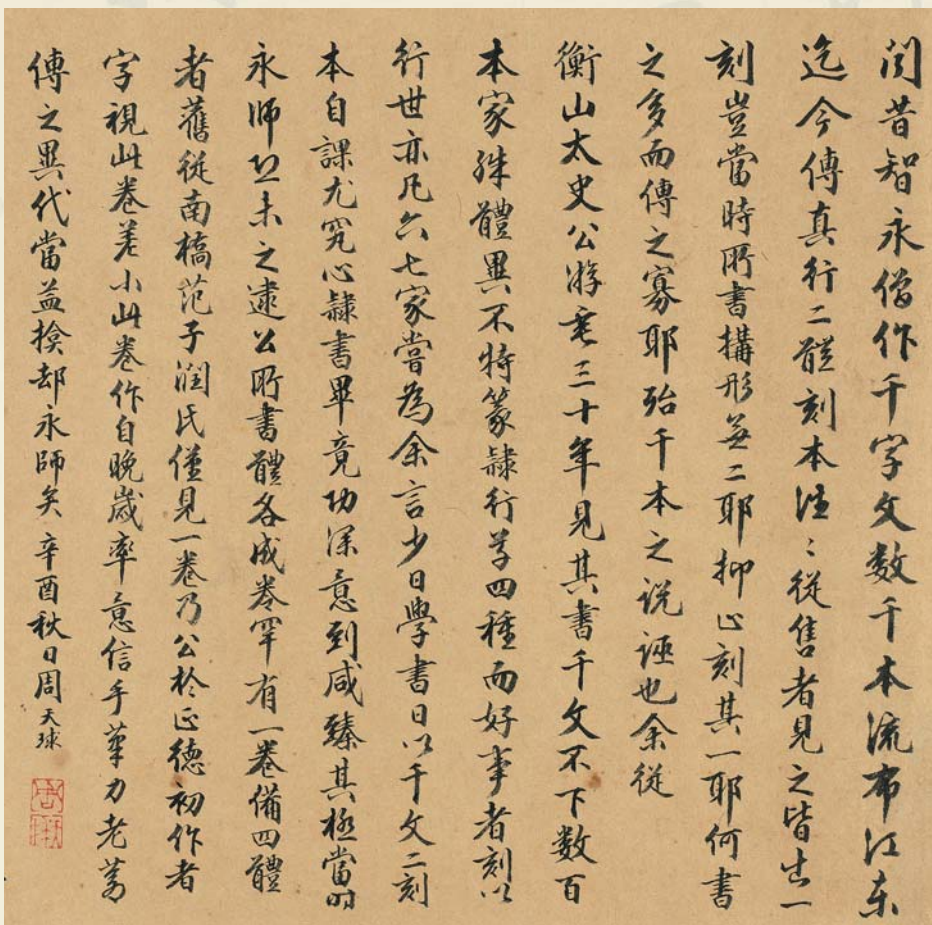 閱昔智永僧作千字文數千本流布江东
迄今傳真行二體刻本往〻從售者見之皆出一
刻豈當時所書搆形無二耶抑止刻其一耶何書
之多而傳之寡耶殆千本之说誣也余従
衡山太史公游幾三十年見其書千文不下数百
本家殊體異不特篆隸行草四種而好事者刻以
行世亦凡六七家嘗為余言少日學書日以千文二刻
本自課尤究心隸書畢竟功深意到咸臻其極當时
永師恐未之逮公所書體各成卷罕有一卷備四體
者舊従南橋范子潤氏僅見一卷乃公於正德初作者
字視此卷差小此卷作自晚歲率意信手筆力老蒼
傳之異代當益掩却永師矣 辛酉秋日周天球